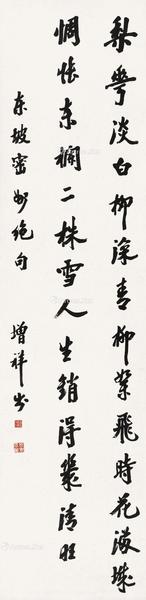 棃花淡白柳深青柳絮飛時花滿城
惆悵東欄二株雪人生銷得幾清明
東坡密州絕句
增祥書